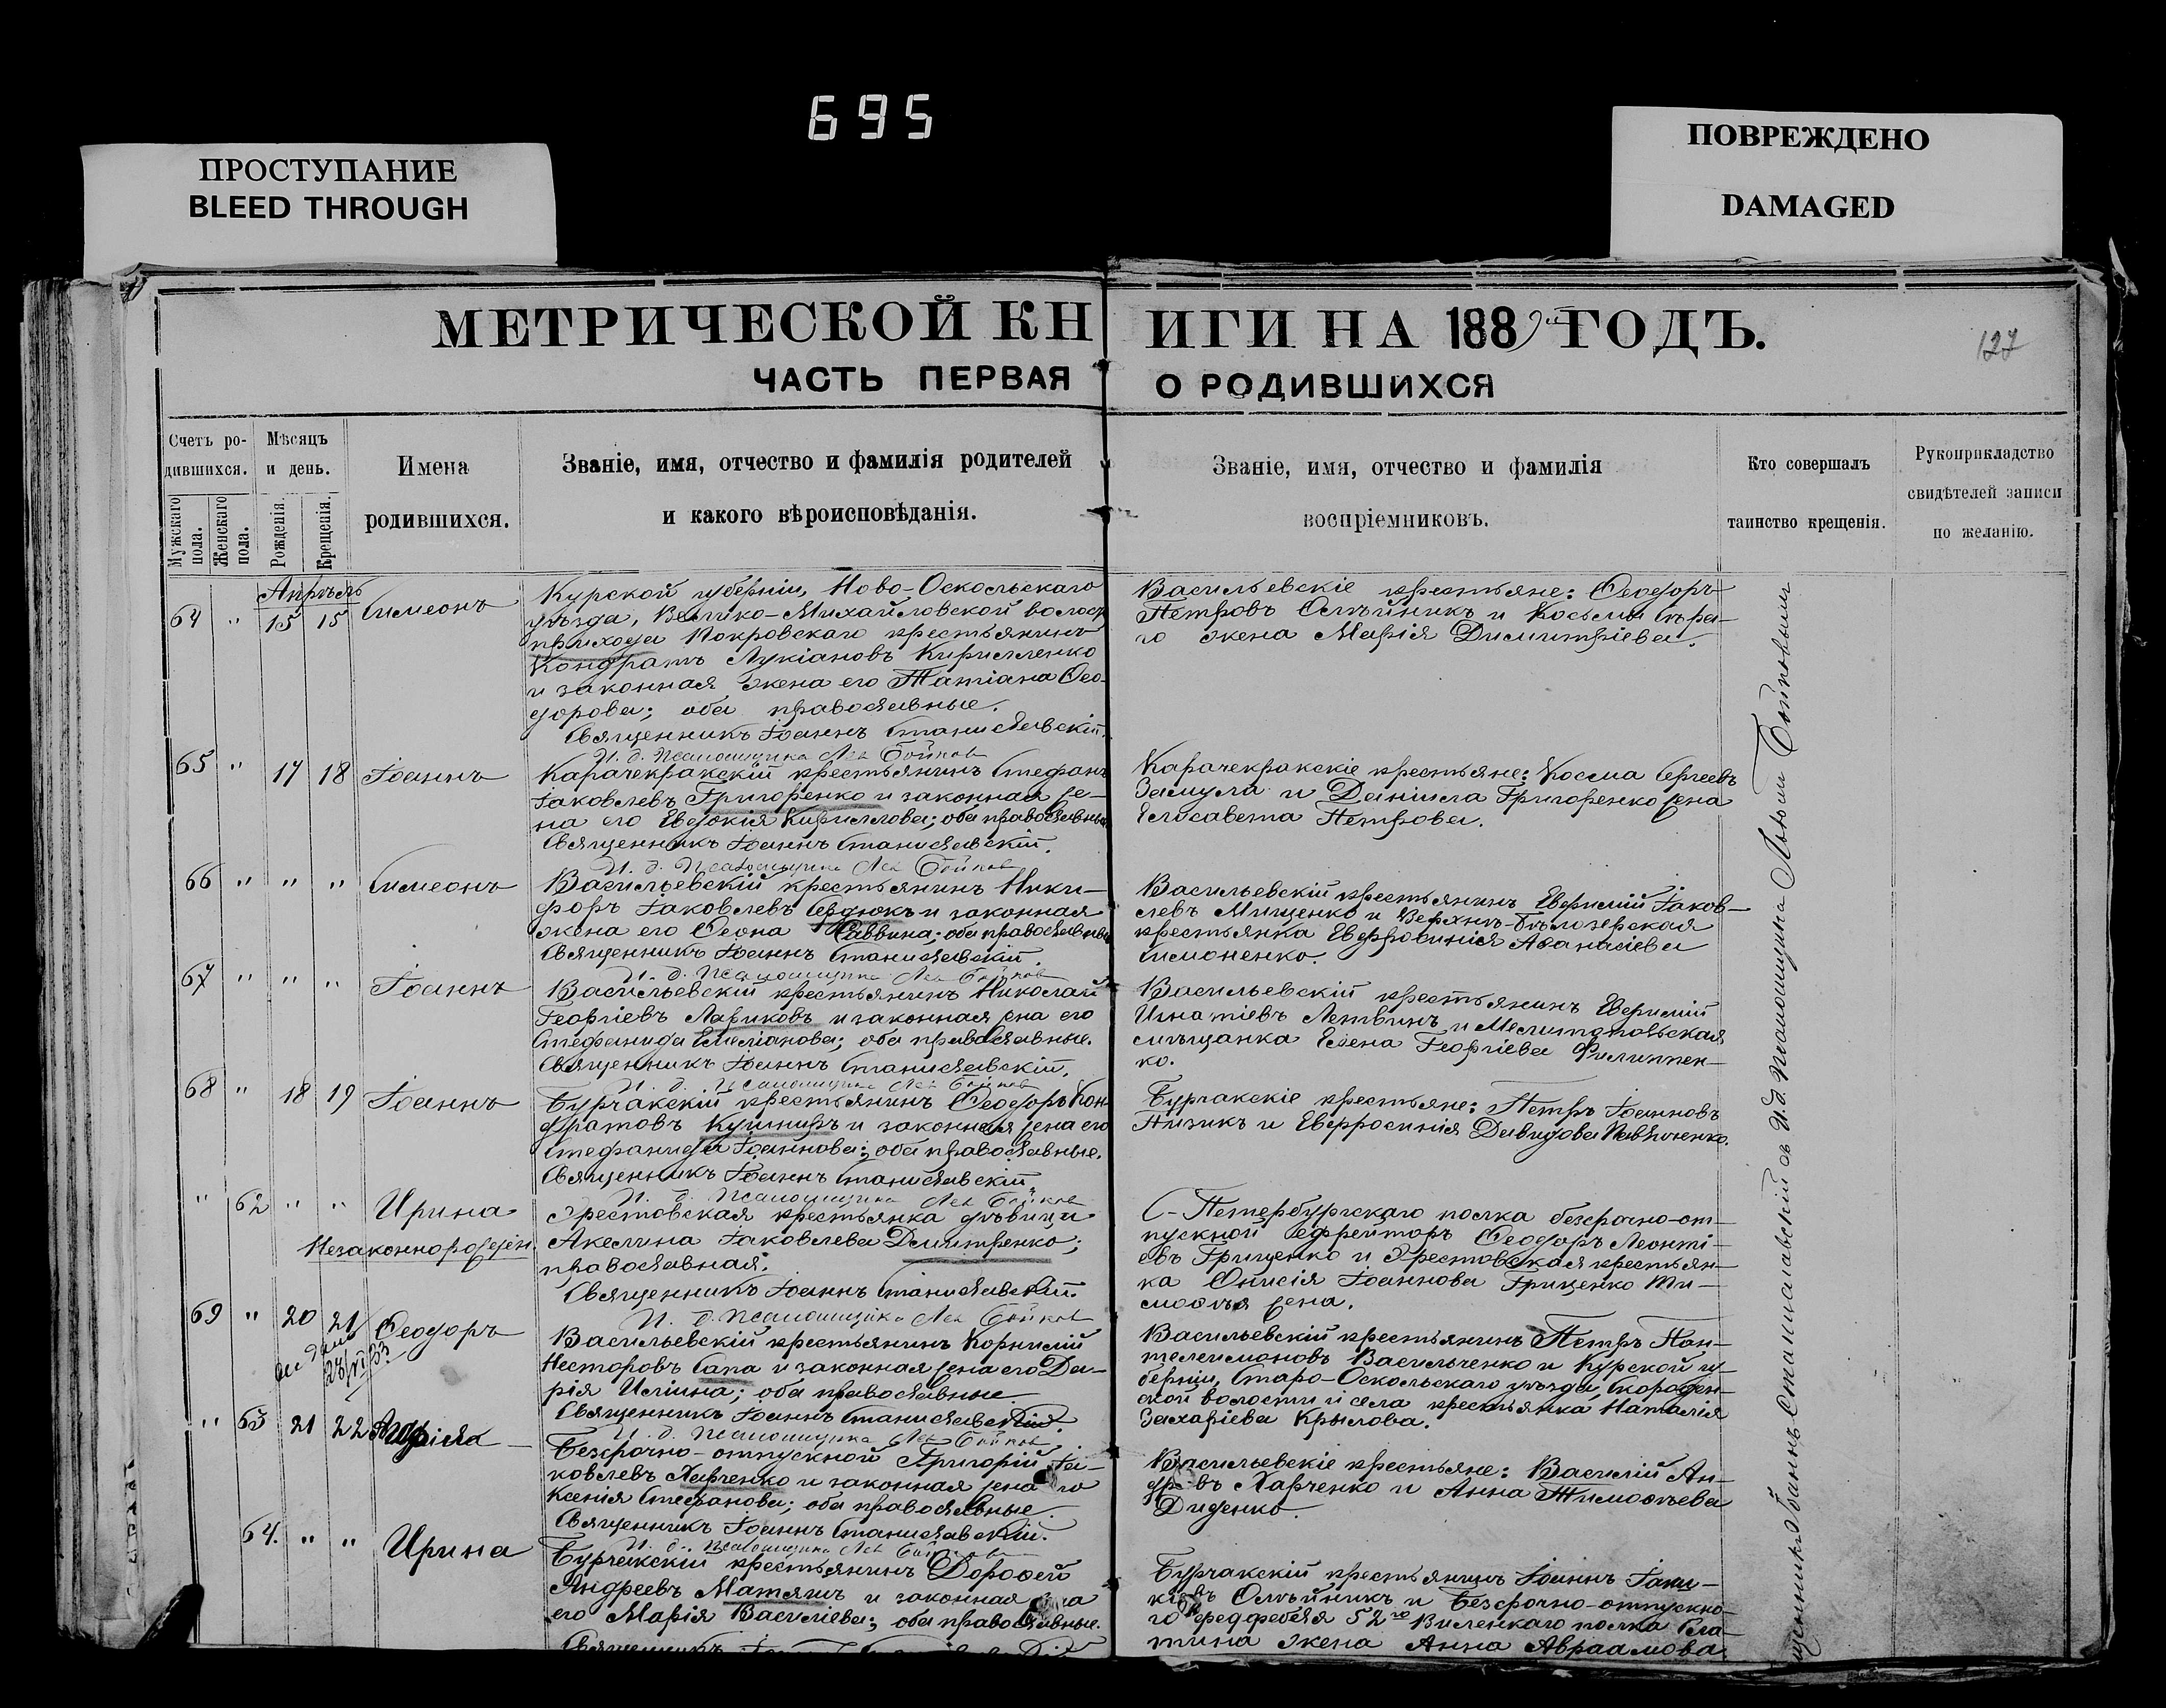 695
ПРОСТУПАНИЕ
BLEED THROUGH
ПОВРЕЖДЕНО
DAMAGED
МЕТРИЧЕСКОЙ КНИГИ НА 188 ГОДЪ.
127
ЧАСТЬ ПЕРВАЯ О РОДИВШИХСЯ
Счетъ ро-
дившихся.
Мужскаго пола.
Женскаго пола.
Мѣсяцъ
и день.
Рожденія.
Крещенія.
Имена
родившихся.
Званіе, имя, отчество и фамилія родителей
и какого вѣроисповѣданія.
Званіе, имя, отчество и фамилія
воспріемниковъ.
Кто совершалъ
таинство крещенія.
Рукоприкладство
свидѣтелей записи
по желанію.
Апрѣль
64 " 15 15 Симеонъ
Курской губерніи, Ново-Оскольскаго
уѣзда, Велико-Михайловской волост.
прихода Покровскаго крестьянинъ
Кондратъ Лукіановъ Кириленко
и законная жена его Татіана Ѳео-
дорова; оба православные.
Священникъ Іоаннъ Станиславскій.
И. д. Псаломщика Лев Бойков
Васильевскіе крестьяне: Ѳеодоръ
Петровъ Олѣйникъ и Космы
го жена Марія Димитріева.
65 " 17 18 Іоаннъ
Карачекракскій крестьянинъ Стефанъ
Іаковлевъ Григоренко и законная же-
на его Евдокія Кириллова; оба православные
Священникъ Іоаннъ Станиславскій.
И. д. Псаломщика Лев Бойков
Карачекракскіе крестьяне: Косма Сергеевъ
Замула и Даніила Григоренко жена
Елисавета Петрова.
66 " " " Симеонъ
Васильевскій крестьянинъ Ники-
форъ Іаковлевъ Сердюкъ и законная
жена его Ѳеона Саввина; оба православные
Священникъ Іоаннъ Станиславскій.
И. д. Псаломщика Лев Бойков
Васильевскій крестьянинъ Евфимій Іаков-
левъ Мищенко и Верхнѣ-Бѣлозерская
крестьянка Евфросинія Аѳанасіева
Симоненко.
67 " " " Іоаннъ
Васильевскій крестьянинъ Николай
Георгіевъ Лариковъ и законная жена его
Стефанида Емеліанова; оба православные.
Священникъ Іоаннъ Станиславскій.
И. д. Псаломщика Лев Бойков
Васильевскій крестьянинъ Евфимій
Игнатіевъ Летвинъ и Мелитопольская
мѣщанка Елена Георгіева Филиппен-
ко.
68 " 18 19 Іоаннъ
Бурчакскій крестьянинъ Ѳеодоръ Кон-
дратовъ Кушниръ и законная жена его
Стефанида Іоаннова; оба православные.
Священникъ Іоаннъ Станиславскій.
И. д. Псаломщика Лев Бойков
Бурчакскіе крестьяне: Петръ Іоанновъ
Пизикъ и Евфросинія Давидова Павлюченко.
" 62 " " Ирина
Незаконнорожден.
Эрестовская крестьянка дѣвица
Акелина Іаковлева Дмитренко;
православная.
Священникъ Іоаннъ Станиславскій.
И. д. Псаломщика Лев Бойков
С-Петербургскаго полка безсрочно-от-
пускной Ефрейторъ Ѳеодоръ Леонті-
евъ Грищенко и Эрестовская крестьян-
ка Онисія Іоаннова Грищенко Ти-
моѳея жена.
69 " 20 21 Ѳеодоръ
Васильевскій крестьянинъ Корнилій
Несторовъ Сапа и законная жена его Да-
рія Иліина; оба православные
Священникъ Іоаннъ Станиславскій.
И. д. Псаломщика Лев Бойков
Васильевскій крестьянинъ Петръ Пан-
телеимоновъ Васильченко и Курской гу-
берніи, Старо-Оскольскаго уѣзда, Скороден-
ской волости и села крестьянка Наталія
Захаріева Крылова.
" 63 21 22
Безсрочно-отпускной Григорій Іа-
ковлевъ Харченко и законная жена го
Ксенія Стефанова; оба православные.
Священникъ Іоаннъ Станиславскій.
И. д. Псаломщика Лев Бойков
Васильевскіе крестьяне: Василій Ан-
др въ Харченко и Анна Тимоѳѣева
Диденко.
64. " " Ирина
Бурчакскій крестьянинъ Дороѳей
Андреевъ Матяшъ и законная на
его Марія Василіева; оба православные.
Священникъ
Бурчакскій крестьянинъ Іоаннъ Іаки-
въ Олѣйникъ и Безсрочно-отпускно-
го федфебеля 52го Виленскаго полка
жена Анна Авраамова
Іоаннъ Станиславскій съ И.д. Псаломщика Львомъ Бойковымъ